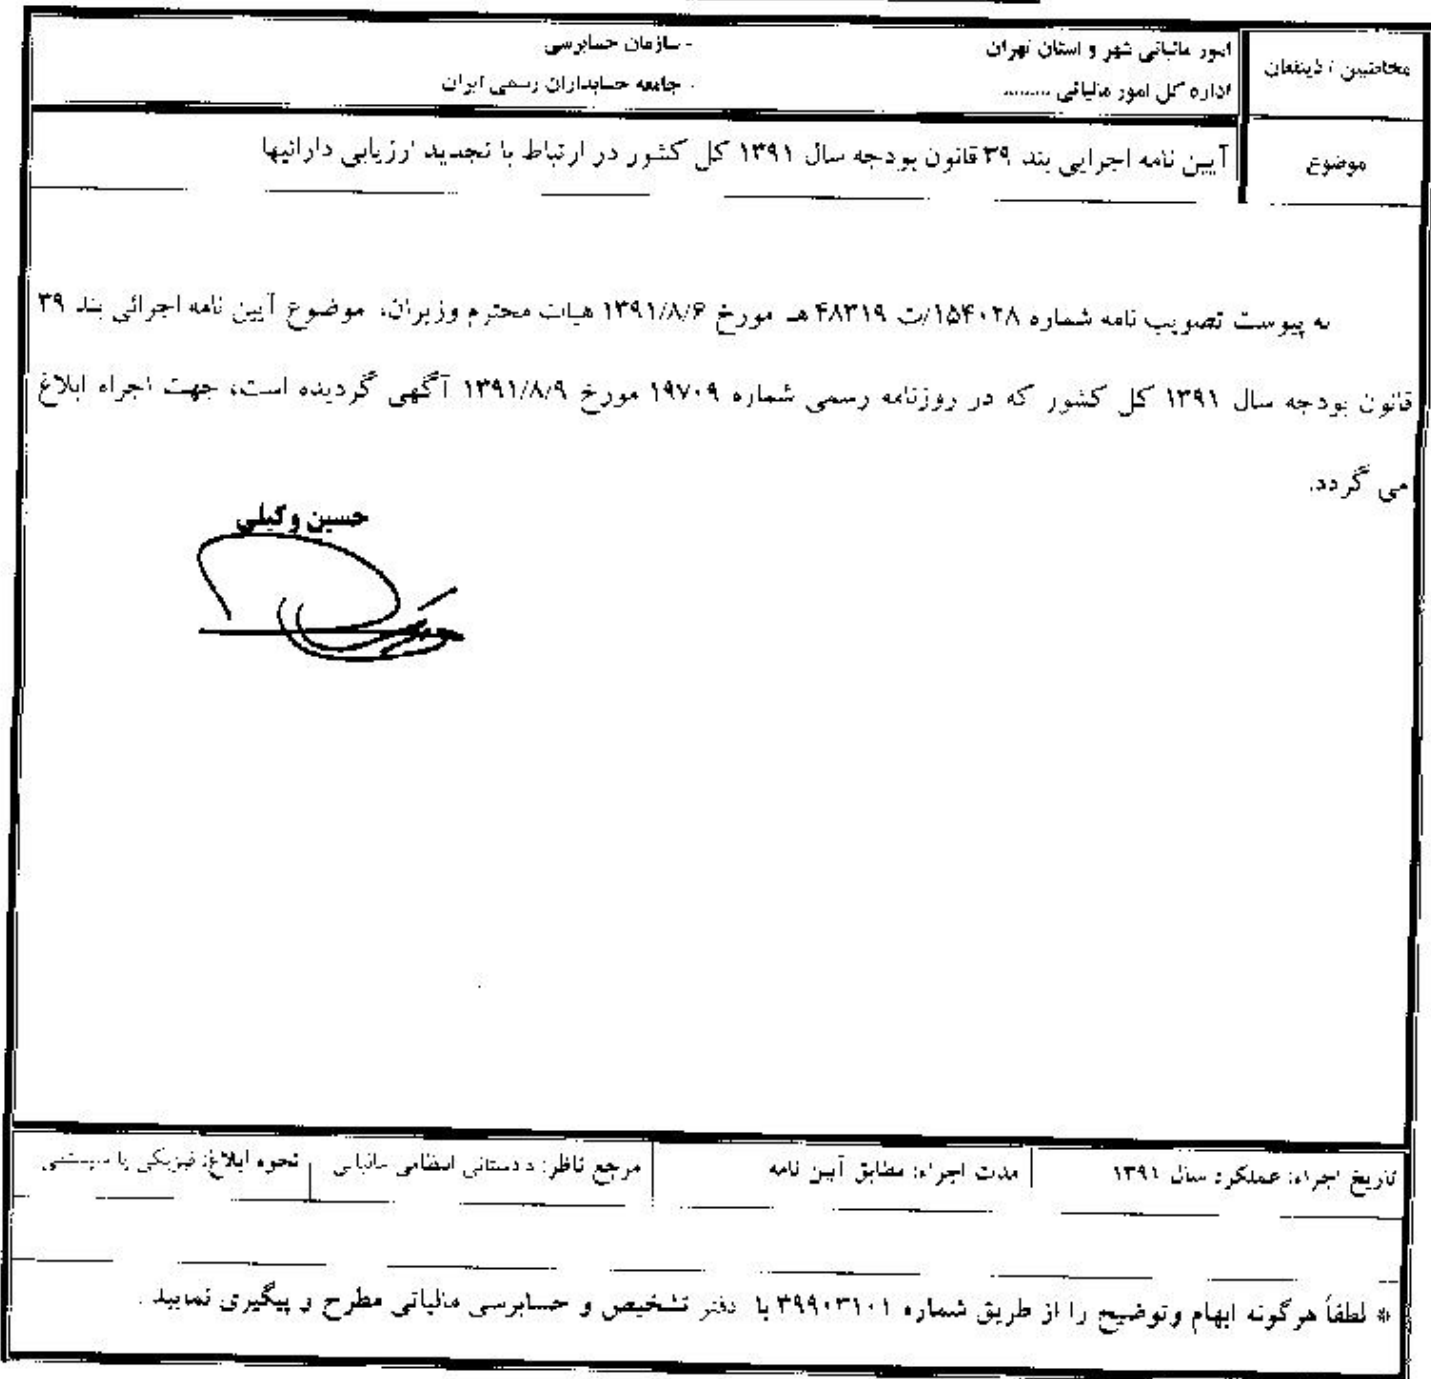 مخاطبین / ذینفعان
امور مالیاتی شهر و استان تهران
اداره کل امور مالیاتی ........
- سازمان حسابرسی
- جامعه حسابداران رسمی ایران
موضوع
آیین نامه اجرایی بند ۳۹ قانون بودجه سال ۱۳۹۱ کل کشور در ارتباط با تجدید ارزیابی دارائیها
به پیوست تصویب نامه شماره ۱۵۴۰۲۸/ت ۴۸۳۱۹ هـ مورخ ۱۳۹۱/۸/۶ هیات محترم وزیران، موضوع آیین نامه اجرائی بند ۳۹
قانون بودجه سال ۱۳۹۱ کل کشور که در روزنامه رسمی شماره ۱۹۷۰۹ مورخ ۱۳۹۱/۸/۹ آگهی گردیده است، جهت اجراء ابلاغ
می گردد.
حسین وکیلی
تاریخ اجراء: عملکرد سال ۱۳۹۱
مدت اجراء: مطابق آیین نامه
مرجع ناظر: دادستانی انتظامی مالیاتی
نحوه ابلاغ: فیزیکی یا سیستمی
* لطفاً هرگونه ابهام وتوضیح را از طریق شماره ۳۹۹۰۳۱۰۱ با دفتر تشخیص و حسابرسی مالیاتی مطرح و پیگیری نمایید .